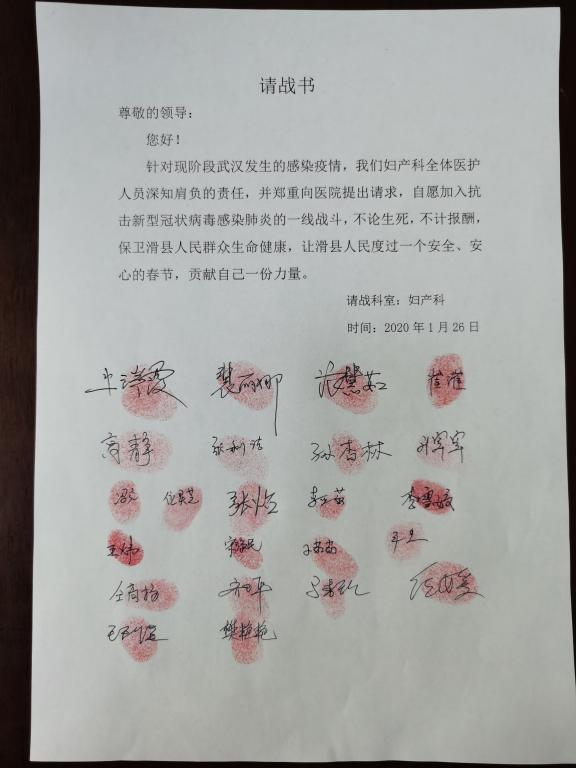 请战书
尊敬的领导：
您好！
针对现阶段武汉发生的感染疫情，我们妇产科全体医护
人员深知肩负的责任，并郑重向医院提出请求，自愿加入抗
击新型冠状病毒感染肺炎的一线战斗，不论生死，不计报酬，
保卫滑县人民群众生命健康，让滑县人民度过一个安全、安
心的春节，贡献自己一份力量。
请战科室：妇产科
时间：2020年1月26日
裴丽娜 张慧茹
高静 张利洁 孙杏林
李雪敏
王炜
樊艳艳